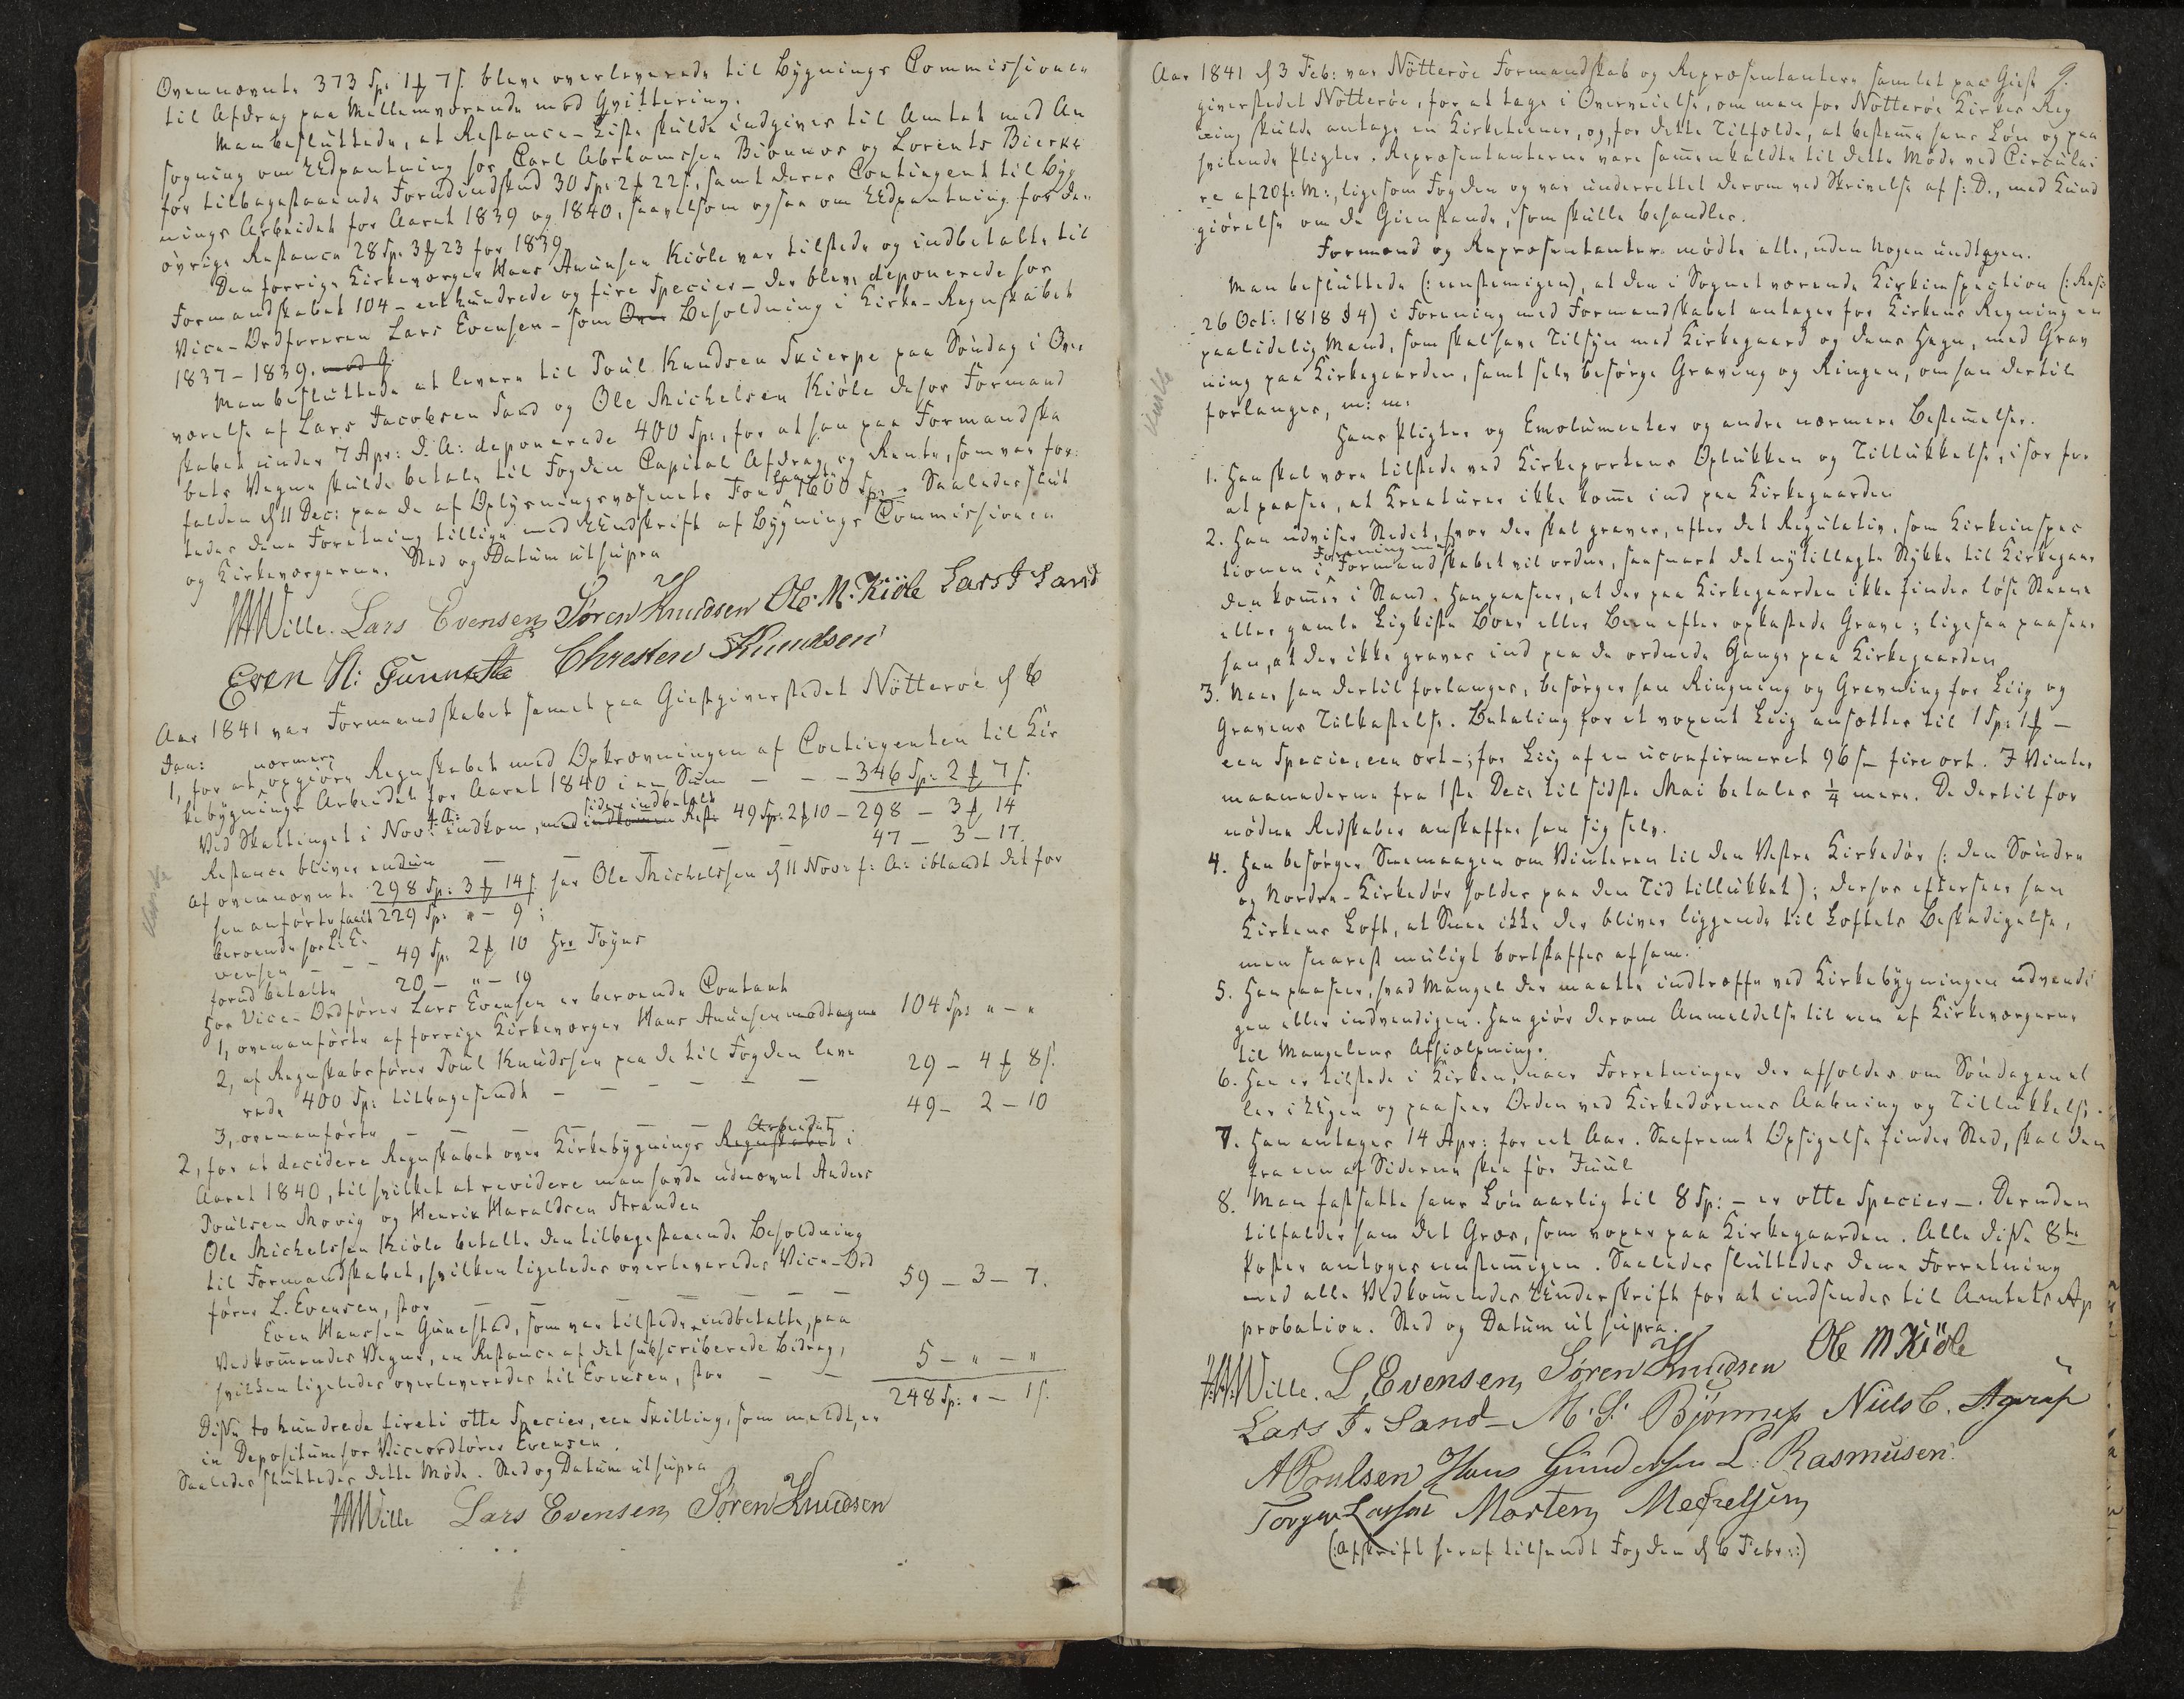 Ovennævnte 373 Sp: 1 ƒ 7 s. bleve overleverede til Bygnings Commissionen
til Afdrag paa Mellemværende mod Qvittering.
Man besluttede, at Restance-Liste skulde indgives til Amtet med An
søgning om Udpantning hos Carl Abrahamssen Biönnes og Lorents Bierke
for tilbagestaaende Forudindskud 30 Sp: 2 ƒ 22 s., samt deres Contingent til Byg
nings Arbeidet for Aaret 1839 og 1840, saavelsom ogsaa om Udpantning for den
övrige Restance 28 Sp: 3 ƒ 23 for 1839.
Den forrige Kirkeværger Hans Anunsen Kiöle var tilstede og indbetalte til
Formandskabet 104 - eet hundrede og fire Specier - der bleve deponerede hos
Vice-Ordføreren Lars Evensen - som Beholdning i Kirke-Regnskabet
1837-1839.
Man besluttede at levere til Poul Knudsen Skierpe paa Søndag i Over
værelse af Lars Jacobsen Sand og Ole Michelsen Kiöle de hos Formand
skabet under 7 Apr: d. A: deponerede 400 Sp:, for at han paa Formandska
bets Vegne skulde betale til Fogden Capital Afdrag og Rente, som var for
falden d 11 Dec: paa de af Oplysningsvæsenets Fond laante 1600 Sp:. Saaledes slut
tedes denne Foretning tilligemed Underskrift af Bygnings Commissionen
og Kirkeværgerne. Sted og Datum ut supra
HWille. Lars Evensen Søren Knudsen Ole M. Kiöle Lars J Sand
Even H: Gunnestad Chresten Knudsen
Aar 1841 var Formandskabet samlet paa Giestgiverstedet Nötteröe d 6
Jan: nærmere
1, for at opgjöre Regnskabet med Opkrævningen af Contingenten til Kir
kebygnings Arbeidet for Aaret 1840 i en Sum - - - 346 Sp: 2 ƒ 7 s.
Ved Skattinget i Nov: f. A: indkom, med indkomne siden indbetalt Rest: 49 Sp: 2 ƒ 10 - 298 - 3 ƒ 14
Restance bliver endnu - - - - 47 - 3 - 17.
Af ovennævnte 298 Sp: 3 ƒ 14 s. har Ole Michelssen d 11 Nov: f: A: iblandt det for
ham anførte faaet 229 Sp: " - 9 ;
beroende hos L: E:
vensen - - - 49 Sp: 2 ƒ 10 Hrr Foyns
forud betalte 20 - " - 19
Hos Vice-Ordförer Lars Evensen er beroende Contant
1, ovenanförte af forrige Kirkeværger Hans Anunsen modtagne 104 Sp: " - "
2, af Regnskabsförer Poul Knudssen paa de til Fogden leve
rede 400 Sp: tilbagesendt - - - - - 29 - 4 ƒ 8 s.
3, ovenanförte - - - - - 49 - 2 - 10
2, for at decidere Regnskabet over Kirkebygnings Regnskabet Arbeidet i
Aaret 1840, til hvilket at revidere man havde udnævnt Anders
Poulsen Movig og Henrik Haraldsen Stranden
Ole Michelssen Kiöle betalte den tilbagestaaende Beholdning
til Formandskabet, hvilken ligeledes overleveredes Vice-Ord
förer L. Evensen, stor - - - - - 59 - 3 - 7.
Even Hanssen Gunestad, som var tilstede, indbetalte, paa
Vedkommendes Vegne, en Restance af det subscriberede Bidrag,
hvilken ligeledes overleveredes til Evensen, stor - - 5 - " - "
248 Sp: " - 1 s.
Disse to hundrede fireti otte Specier, een Skilling, som meldt, er
in Depositum hos Viceordförer Evensen.
Saaledes sluttedes dette Möde. Sted og Datum ut supra
HWille Lars Evensen Søren Knudsen
9.
Aar 1841 d 3 Feb: var Nötteröe Formandskab og Repræsentanterne samlet paa Giest
giverstedet Nötteröe, for at tage i Overveielse, om man for Nötteröe Kirkes Reg
ning skulde antage en Kirketiener, og, for dette Tilfælde, at bestemme hans Løn og paa
hvilende Pligter. Repræsentanterne vare sammenkaldte til dette Møde ved Circulai
re af 20 f: M:, ligesom Fogden og var underrettet derom ved Skrivelse af s: D., med Kund
giörelse om de Gienstande, som skulle behandles.
Formænd og Repræsentanter mödte alle, uden nogen undtagen.
Man besluttede (: eenstemigen), at den i Sognet værende Kirkeinspection (: Res:
26 Oct: 1818 § 4) i Forening med Formandskabet antager for Kirkens Regning en
paalidelig Mand, som skal have Tilsyn med Kirkegaard og dens Hegn, med Grav
ning paa Kirkegaarden, samt selv besörge Graving og Ringen, om han dertil
forlanges, m: m:
Hans Pligter og Emolumenter og andre nærmere Bestemmelser.
1. Han skal være tilstede ved Kirkeportens Oplukken og Tillukkelse, især for
at paasee, at Kreaturer ikke komme ind paa Kirkegaarden
2. Han udviser Stedet, hvor der skal graves, efter det Regulativ, som Kirkeinspec
tionen i Forening med Formandskabet vil ordne, saasnart det nytillagte Stykke til Kirkegaar
den kommer i Stand. Han paaseer, at der paa Kirkegaarden ikke findes løse Steene
eller gamle Ligkiste Bord eller Been efter opkastede Grave; ligesaa paaseer
han, at der ikke graves ind paa de ordnede Gange paa Kirkegaarden
3. Naar han dertil forlanges, besörger han Ringning og Gravning for Liig og
Gravens Tilkastelse. Betaling for et voxent Liig ansættes til 1 Sp: 1 ƒ -
een Specie, een ort -; for Liig af en uconfirmeret 96 s - fire ort. I Vinter
maanederne fra 1ste Dec: til sidste Mai betales 1/4 mere. De dertil for
nödne Redskaber anskaffer han sig selv.
4. Han besörger Sneemaagen om Vinteren til den Vestre Kirkedör (: den Söndre
og Nordre-Kirkedör holdes paa den Tid tillukket); derhos efterseer han
Kirkens Loft, at Snee ikke der bliver liggende til Loftets Beskadigelse,
men snarest muligt bortskaffes af ham.
5. Han paaseer, hvad Mangel der maatte indtræffe ved Kirkebygningen udvendi
gen eller indvendigen. Han giör derom Anmeldelse til een af Kirkeværgerne
til Mangelens Afhiælpning.
6. Han er tilstede i Kirken, naar Forretninger der afholdes om Söndagen el
ler i Ugen og paaseer Orden ved Kirkedörenes Aabning og Tillukkelse.
7. Han antages 14 Apr: for eet Aar. Saafremt Opsigelse finder Sted, skal den
fra een af Siderne skee för Juul
8. Man fastsatte hans Lön aarlig til 8 Sp: - er otte Specier -. Desuden
tilfalder ham det Græs, som voxer paa Kirkegaarden. Alle disse 8te
Poster antoges eenstemmigen. Saaledes sluttedes denne Forretning
med alle Vedkommendes Underskrift for at indsendes til Amtets Ap
probation. Sted og Datum ut supra.
HWille. L. Evensen Søren Knudsen Ole M Kiöle
Lars J. Sand M. S. Björnnes Niels C. Agerup
A Poulsen Hans Gundersen L. Rasmusen
Morten
(: Afskrift heraf tilsendt Fogden d 6 Febr: :)